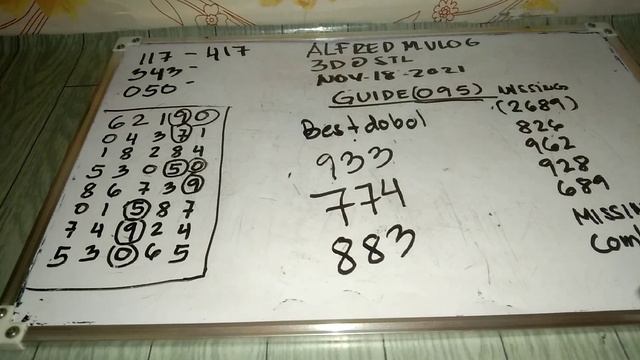 117 - 417
343 -
050 -
6 2 1 9 0
0 4 3 7 1
1 8 2 8 4
5 3 0 5 0
8 6 7 3 9
0 1 5 8 7
7 4 9 2 4
5 3 0 6 5
ALFRED M VLOG
3D @ STL
NOV-18-2021
GUIDE (095)
Best dobol
933
774
883
MISSING
(2689)
826
962
928
689
MISSIN
Com